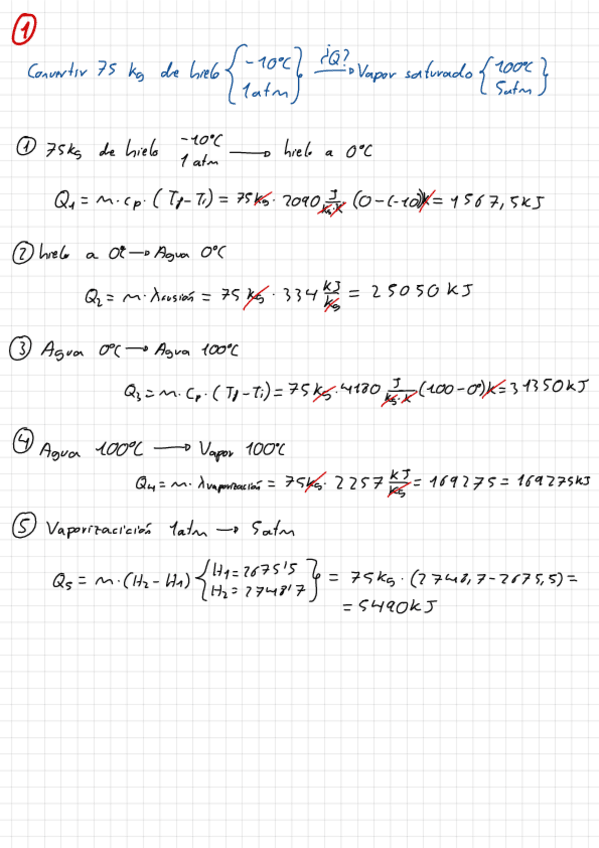 1
Convertir 75 kg de hielo { -10ºC } ¿Q? → Vapor saturado { 100ºC }
1atm 5atm
① 75kg de hielo -10ºC 1 atm → hielo a 0ºC
Q1 = m · cp · (Tf - Ti) = 75kg · 2090 J/kg·K (0-(-10))K = 1567,5kJ
② hielo a 0ºC → Agua 0ºC
Q2 = m · λfusión = 75 kg · 334 kJ/kg = 25050 kJ
③ Agua 0ºC → Agua 100ºC
Q3 = m · Cp · (Tf - Ti) = 75kg · 4180 J/kg·K (100-0º)K = 31350kJ
④ Agua 100ºC → Vapor 100ºC
Q4 = m · λvaporización = 75kg · 2257 kJ/kg = 169275 = 169275kJ
⑤ Vaporizacición 1atm → 5atm
Q5 = m · (H2 - H1) { H1 = 2675'5 H2 = 2748'7 } = 75kg · (2748,7-2675,5) =
= 5490kJ